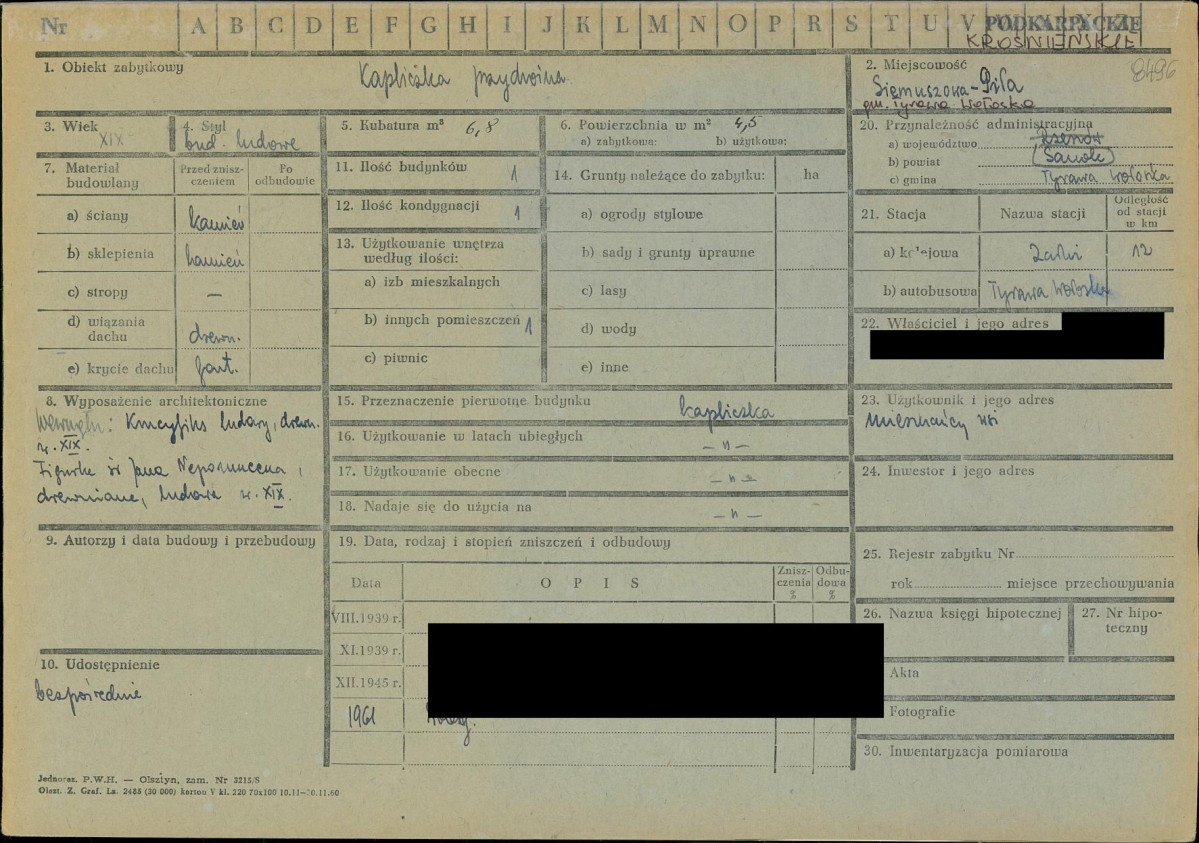 Nr A B C D E F G H I J K L M N O P R S T U V
PODKARPACKIE
KROŚNIEŃSKIE
1. Obiekt zabytkowy
Kapliczka przydrożna
2. Miejscowość
8496
Siemuszowa-Piła
gm. Tyrawa Wołoska
3. Wiek
XIX
4. Styl
bud. ludowe
5. Kubatura m³ 6,8
6. Powierzchnia w m² 4,5
a) zabytkowa: b) użytkowa:
20. Przynależność administracyjna
a) województwo Rzeszów
b) powiat Sanok
c) gmina Tyrawa Wołoska
7. Materiał budowlany
Przed znisz-
czeniem
Po
odbudowie
a) ściany kamień
b) sklepienia kamień
c) stropy —
d) wiązania
dachu drewn.
e) krycie dachu gont.
11. Ilość budynków 1
12. Ilość kondygnacji 1
13. Użytkowanie wnętrza
według ilości:
a) izb mieszkalnych
b) innych pomieszczeń 1
c) piwnic
14. Grunty należące do zabytku: ha
a) ogrody stylowe
b) sady i grunty uprawne
c) lasy
d) wody
e) inne
21. Stacja
Nazwa stacji
Odległość
od stacji
w km
a) kolejowa 12
b) autobusowa Tyrawa Wołoska
22. Właściciel i jego adres
8. Wyposażenie architektoniczne
Wewnątrz: Krucyfiks ludowy, drewn.
w. XIX.
Figurka św Jana Nepomucena,
drewniana, ludowa w. XIX.
15. Przeznaczenie pierwotne budynku kapliczka
16. Użytkowanie w latach ubiegłych — „ —
17. Użytkowanie obecne — „ —
18. Nadaje się do użycia na — „ —
23. Użytkownik i jego adres
mieszkańcy wsi
24. Inwestor i jego adres
9. Autorzy i data budowy i przebudowy
10. Udostępnienie
bezpośrednie
19. Data, rodzaj i stopień zniszczeń i odbudowy
Data
O P I S
Znisz-
czenia
%
Odbu-
dowa
%
VIII.1939 r.
XI.1939 r.
XII.1945 r.
1961
25. Rejestr zabytku Nr
rok miejsce przechowywania
26. Nazwa księgi hipotecznej
27. Nr hipo-
teczny
Akta
Fotografie
30. Inwentaryzacja pomiarowa
Jednorаz. P.W.H. — Olsztyn, zam. Nr 3215/S
Olszt. Z. Graf. La. 2488 (30 000) karton V kl. 220 70x100 10.11-30.11.60